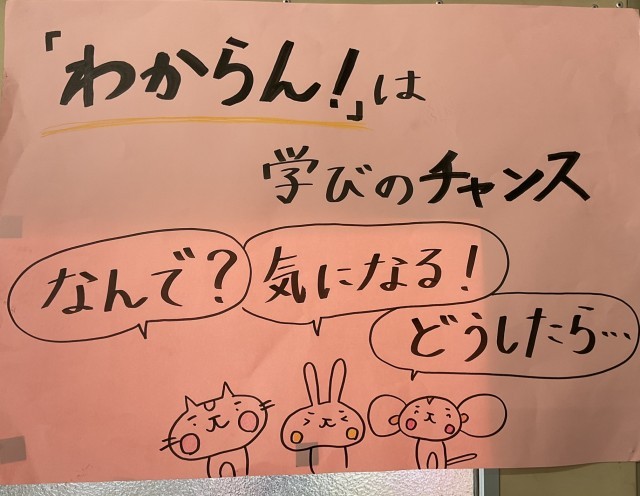 「わからん!」は
学びのチャンス
なんで?
気になる!
どうしたら…